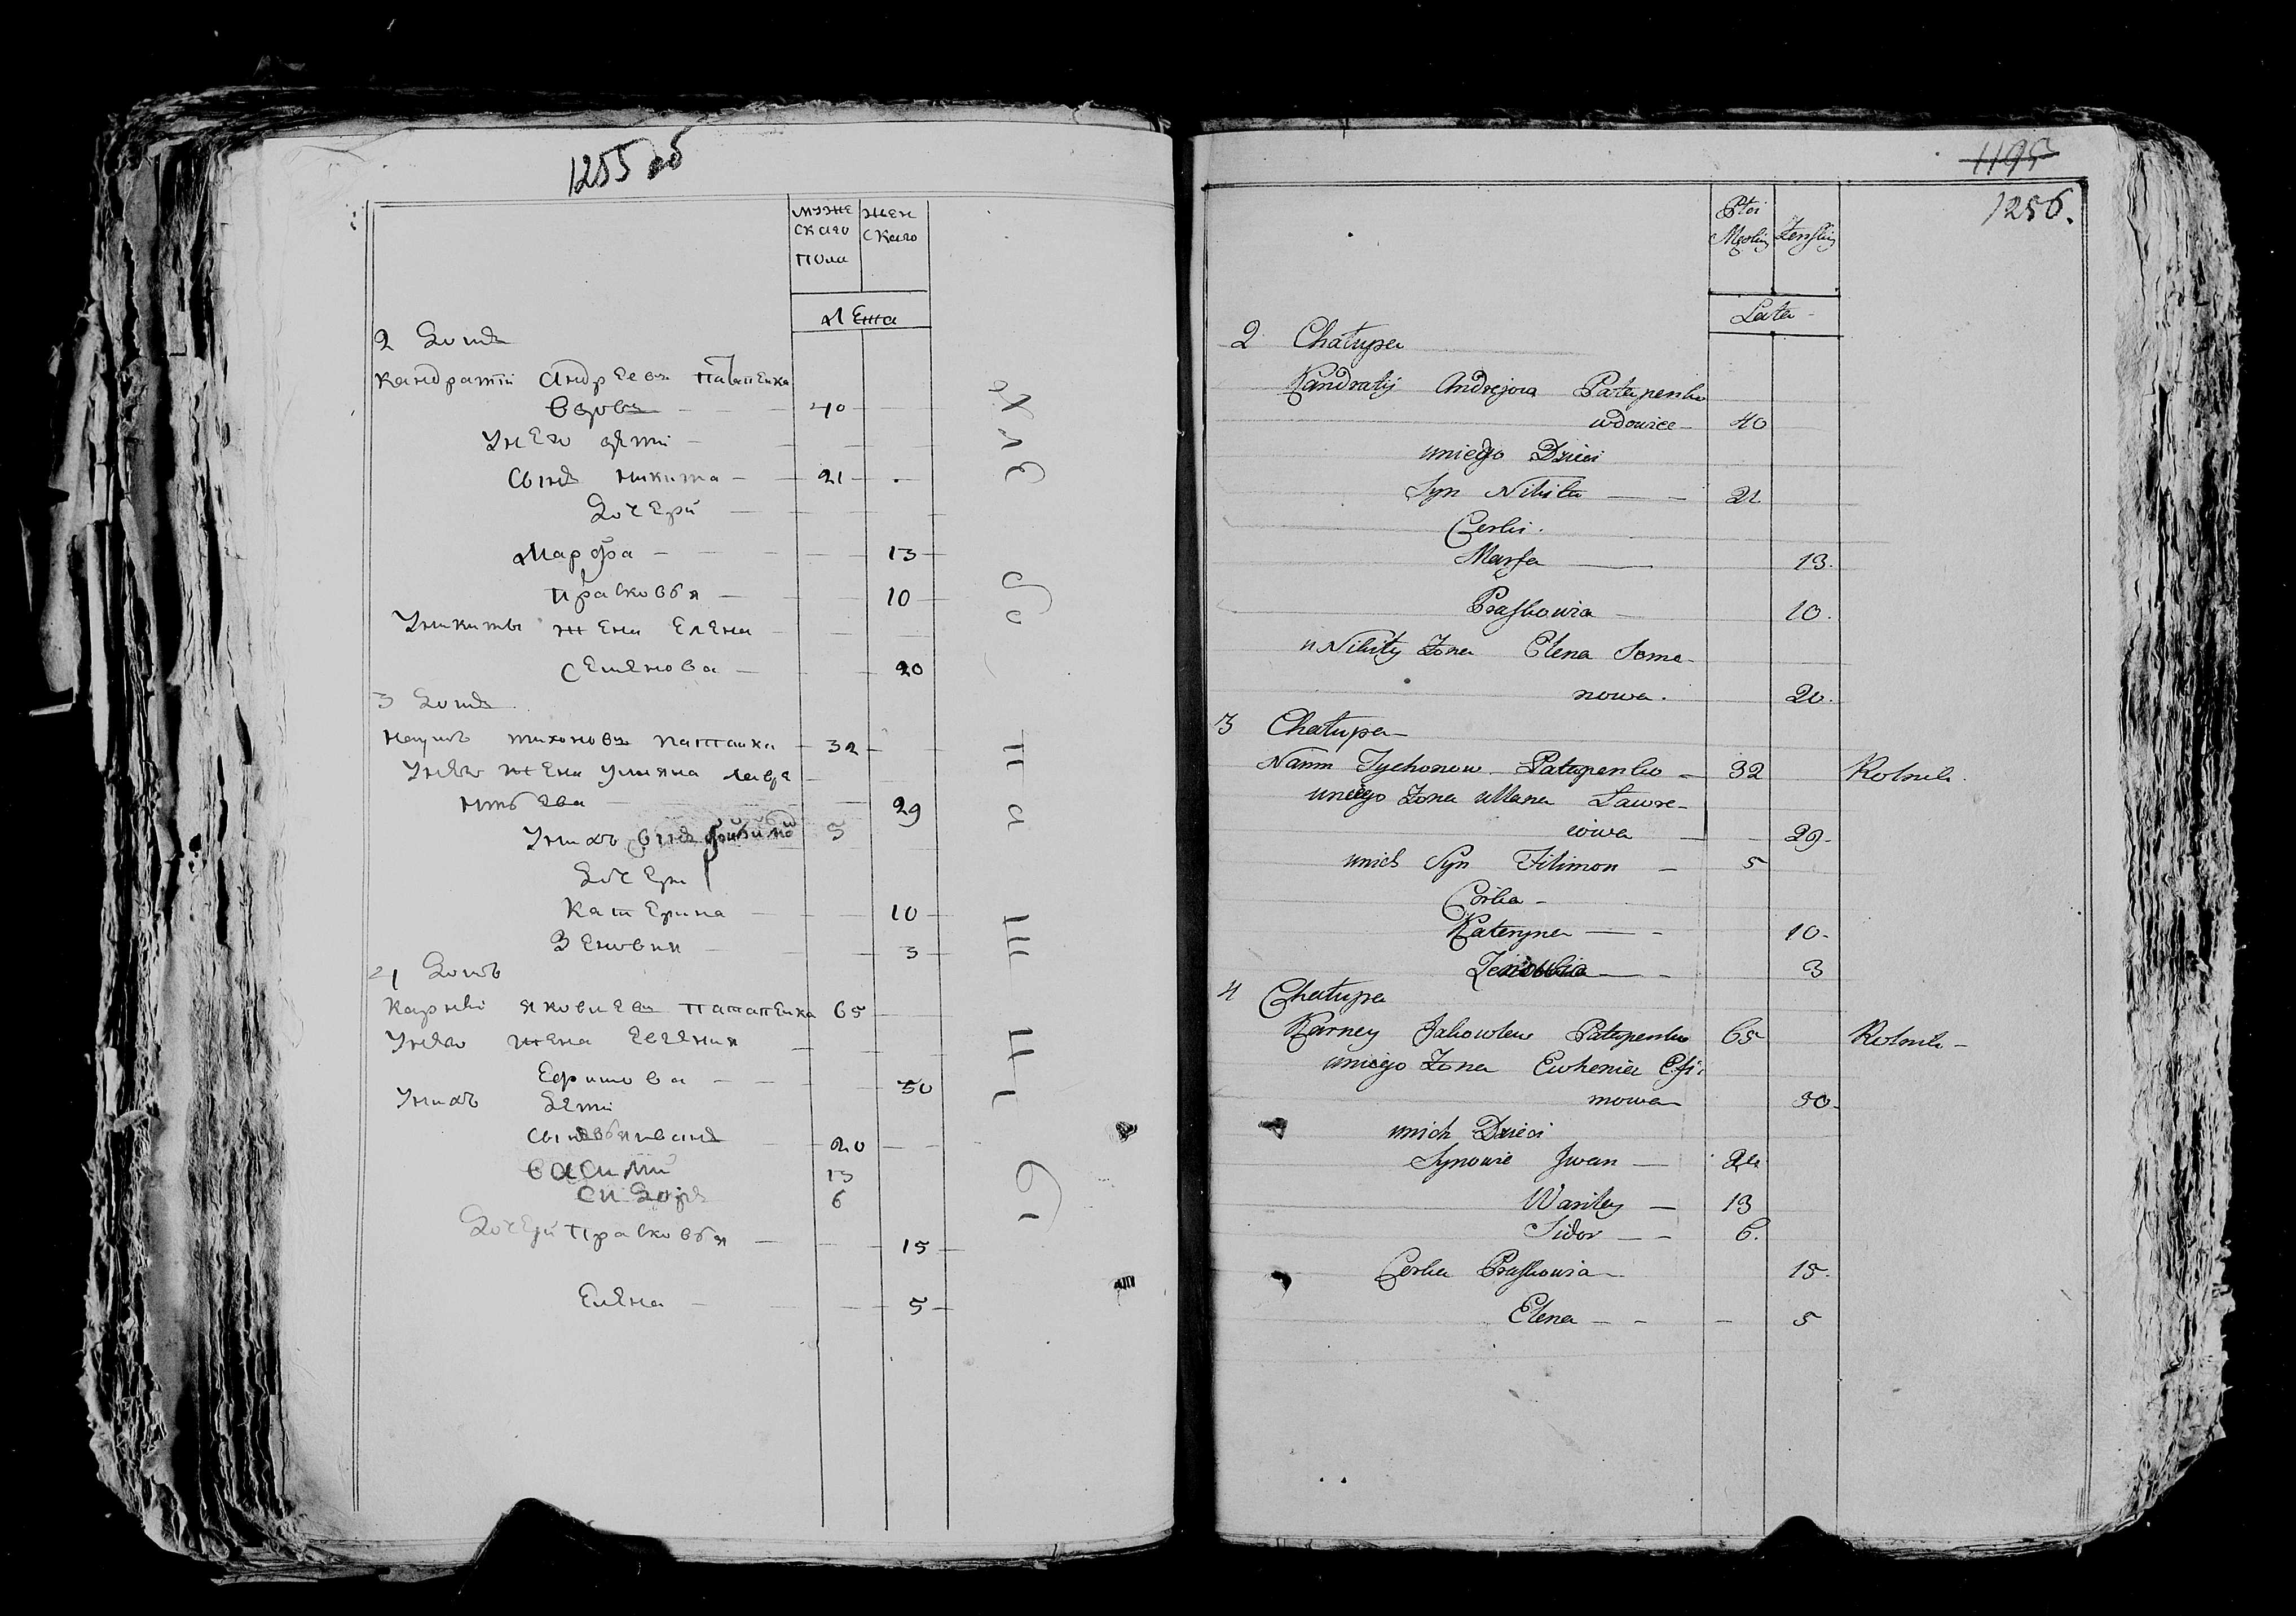 1255 об
муже жен
скаго скаго
пола
лета
2 Домъ
Кандратiй Андреевъ Патапенка
вдовъ 40
У него дети
Сынъ Никита 21
Дочери
Марфа 13
Прасковья 10
У Никиты жена Елена
Семенова 20
3 Домъ
Наумъ Тихоновъ 32
У него жена Ульяна Лавре
нтьева 29
У нихъ сынъ 5
Дочери
Катерина 10
Зеновия 3
4 Домъ
Карней Яковлевъ Патапенка 65
У него жена Евгения
Ефимова 50
У нихъ дети
Иванъ 20
Василий 13
Сидоръ 6
Дочери Прасковья 15
Елена 5
1195
1256.
Płci
Męskiey Żeńskiey
Lata
2 Chałupa
Kandratij Andrejow Patapenko
wdowiec 40
u niego Dzieci
Syn Nikita 21
Corki
Marfa 13.
Praskowia 10.
u Nikity Żona Elena Seme-
nowa. 20.
3 Chałupa
Naum Tychonow Patapenko 32 Rolnik.
u niego Żona Ullana Lawre-
29.
u nich Syn Filimon 5
Corka
Kateryna 10.
Zenowia 3
4 Chałupa
Karney Jakowlew Patapenko 65 Rolnik
u niego Żona Ewhenia Efi-
mowa 50.
u nich Dzieci
Synowie Iwan
Wasiley 13
Sidor 6.
Corka Praskowia 15.
Elena 5